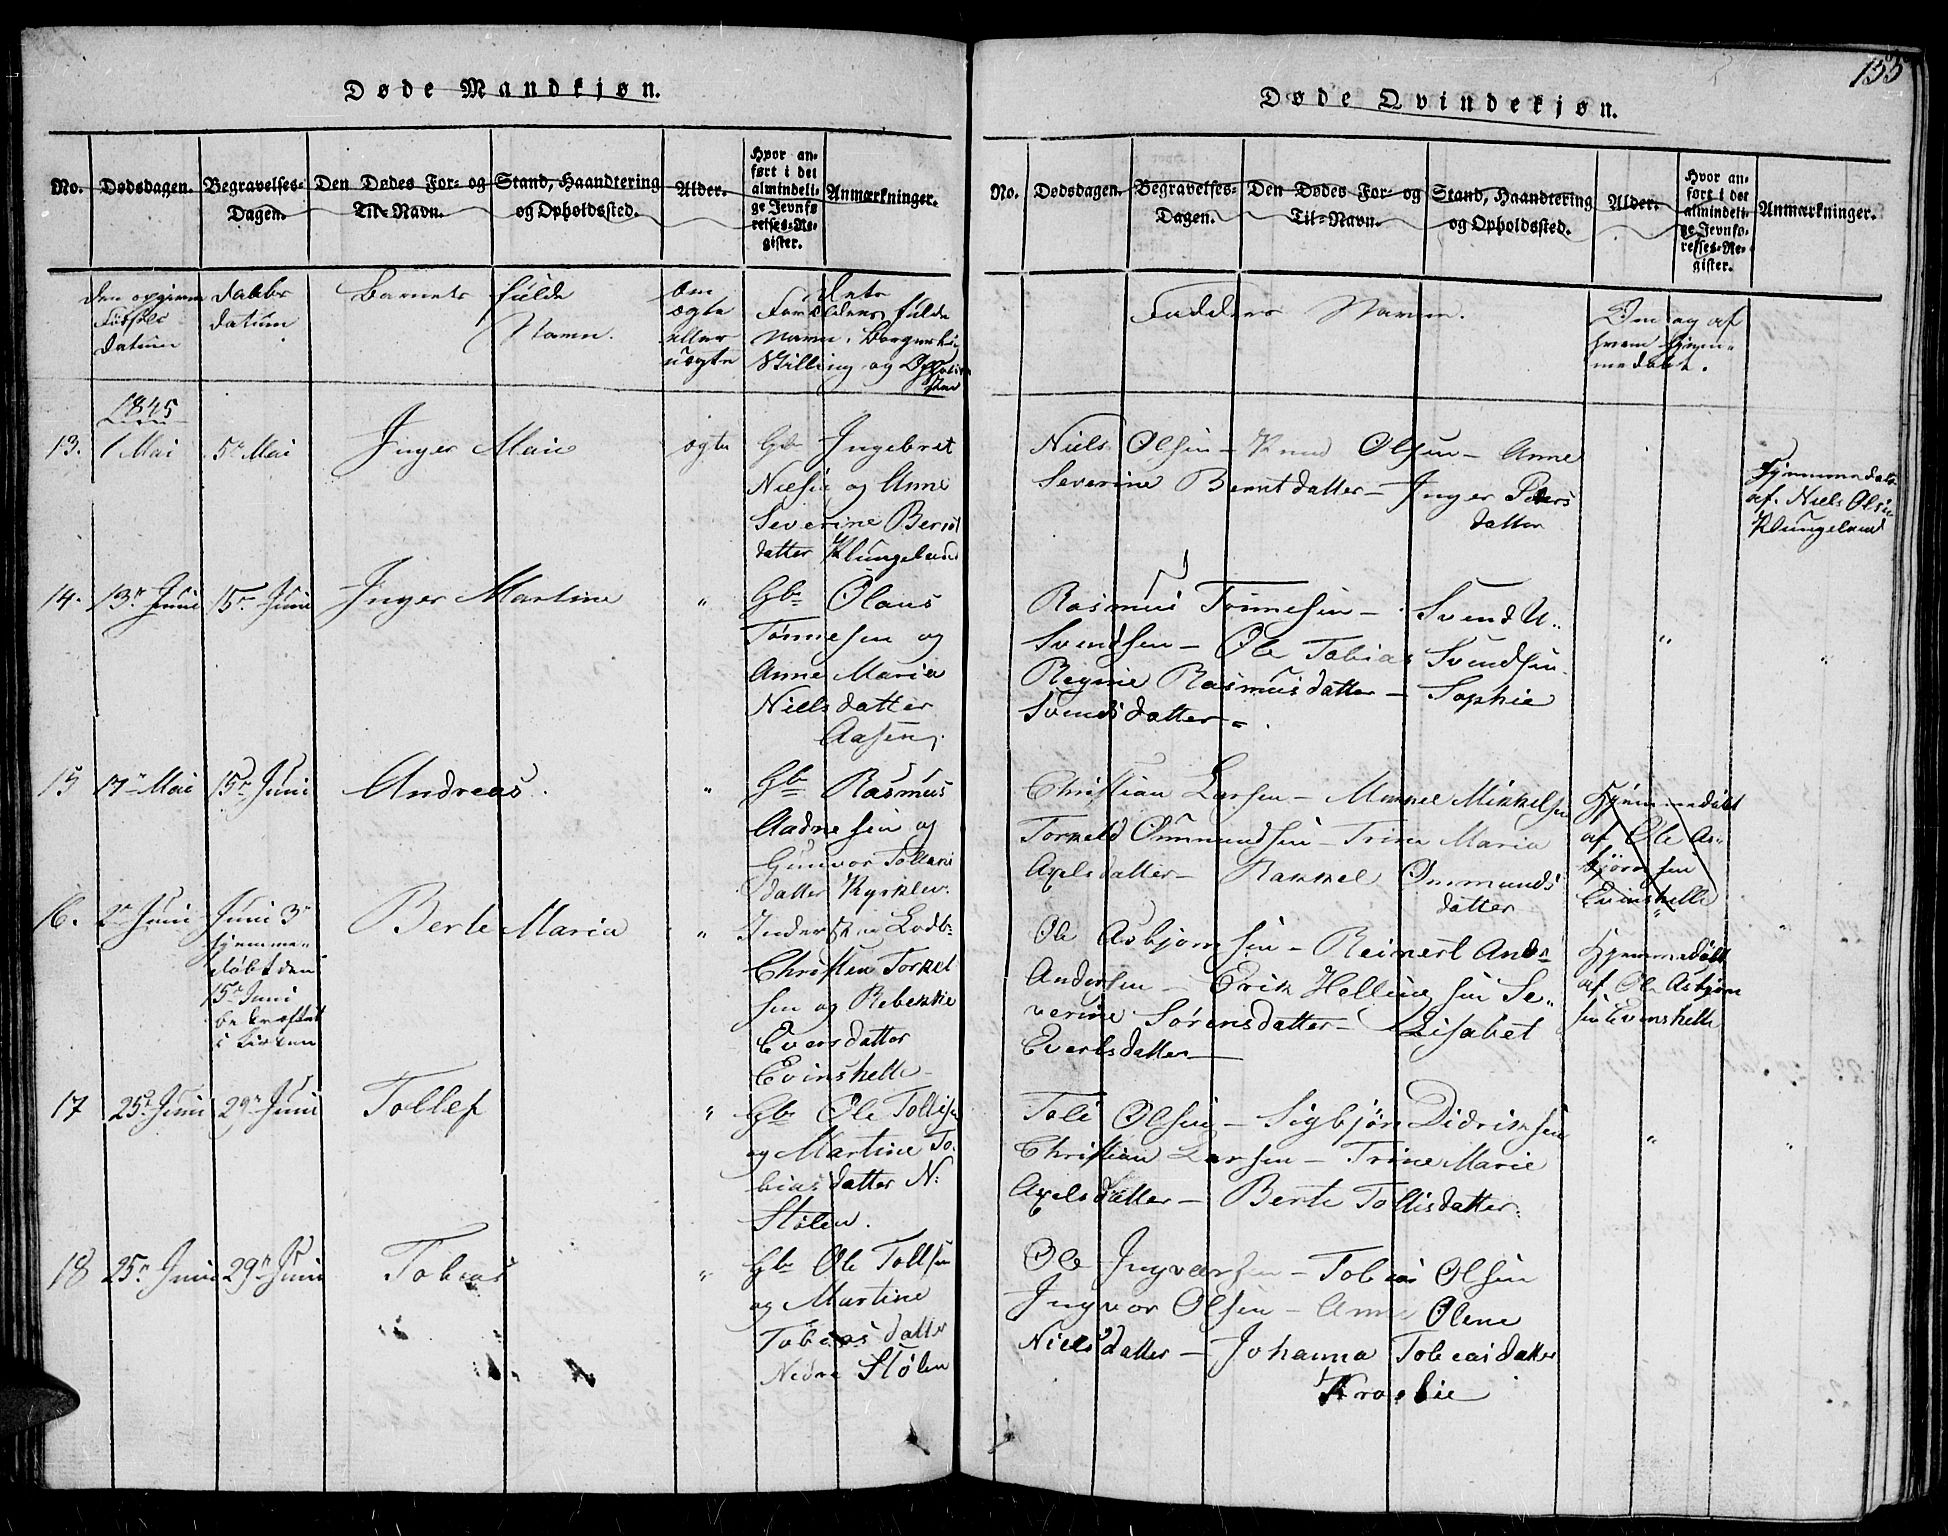 155
Døde Mandkjøn.
Døde Qvindekjøn.
No.
Dødsdagen.
Begravelses-
Dagen.
Den Dødes For- og
Til-Navn.
Stand, Haandtering
og Opholdssted.
Alder.
Hvor an-
ført i det
almindeli-
ge Jevnfø
relses-Re-
gister.
Anmærkninger.
No.
Dødsdagen.
Begravelses-
Dagen.
Den Dødes For- og
Til-Navn.
Stand, Haandtering
og Opholdssted.
Alder.
Hvor an-
ført i det
almindeli-
ge Jevnfo-
relses-Re-
gister.
Anmærkninger.
Fødsels
datum
Daabs
datum
Barnets fulde
Navn.
Om
ægte
eller
uægte
Forældres fulde
Navn,
Stilling og
Fadderes Navn.
Om og af
hvem hjem-
medøbt.
1845
13.
1 Mai
5te Mai
Inger Marie
ægte
Gb: Ingebret
Nielsen og Anne
Severine Bernt
datter Klungeland
Niels Olsen - Knud Olsen - Anne
Severine Berntdatter - Inger Peders
datter
Hjemmedøbt
af Niels Olsen
Klungeland
14.
13de Juni
15de Juni
Inger Martine
"
Gb: Olaus
Tønnesen og
Anne Maria
Nielsdatter
Aasen.
Rasmus Tønnesen - Svend U..
Svendsen - Ole Tobias Svendsen
Regine Rasmusdatter - Sophie
Svendsdatter -
"
"
15
17de Mai
15de Juni
Andreas.
"
Gb: Rasmus
Aadnesen og
Gunvor
datter
Christian Larsen - Mikkel Mikkelsen
Torkeld Ommundsen - Trine Maria
Axelsdatter - Rakkel Ommunds
datter
Hjemmedøbt
af Ole As-
bjørnsen
Evinshelle
"
16.
2de Juni
Juni 3de
hjemme-
døbt den
15de Juni
bekræftet
i kirken
Berte Maria
"
Christen Torkel
sen og Rebekke
Evarsdatter
Evinshelle
Ole Asbjørnsen - Reinert
Andersen - Erik Hellinesen Se-
verine Sørensdatter - Lisabet
Evertsdatter -
Hjemmedøbt
af Ole Asbjørn
sen Evinshelle
"
17
25de Juni
29de Juni
Tollef
"
Gb: Ole Tollisen
og Martine To-
biasdatter N:
Stølen.
Toli Olsen - Sigbjørn Didriksen
Christian Larsen - Trine Marie
Axelsdatter - Berte Tollisdatter.
"
"
18
25de Juni
29de Juni
Tobias
"
Gb: Ole Tollsen
og Martine
Tobiasdatter
Nedre Stølen
Ole Ingvarsen - Tobias Olsen
Ingvor Olsen - Anne Olene
Nielsdatter - Johanna Tobiasdatter